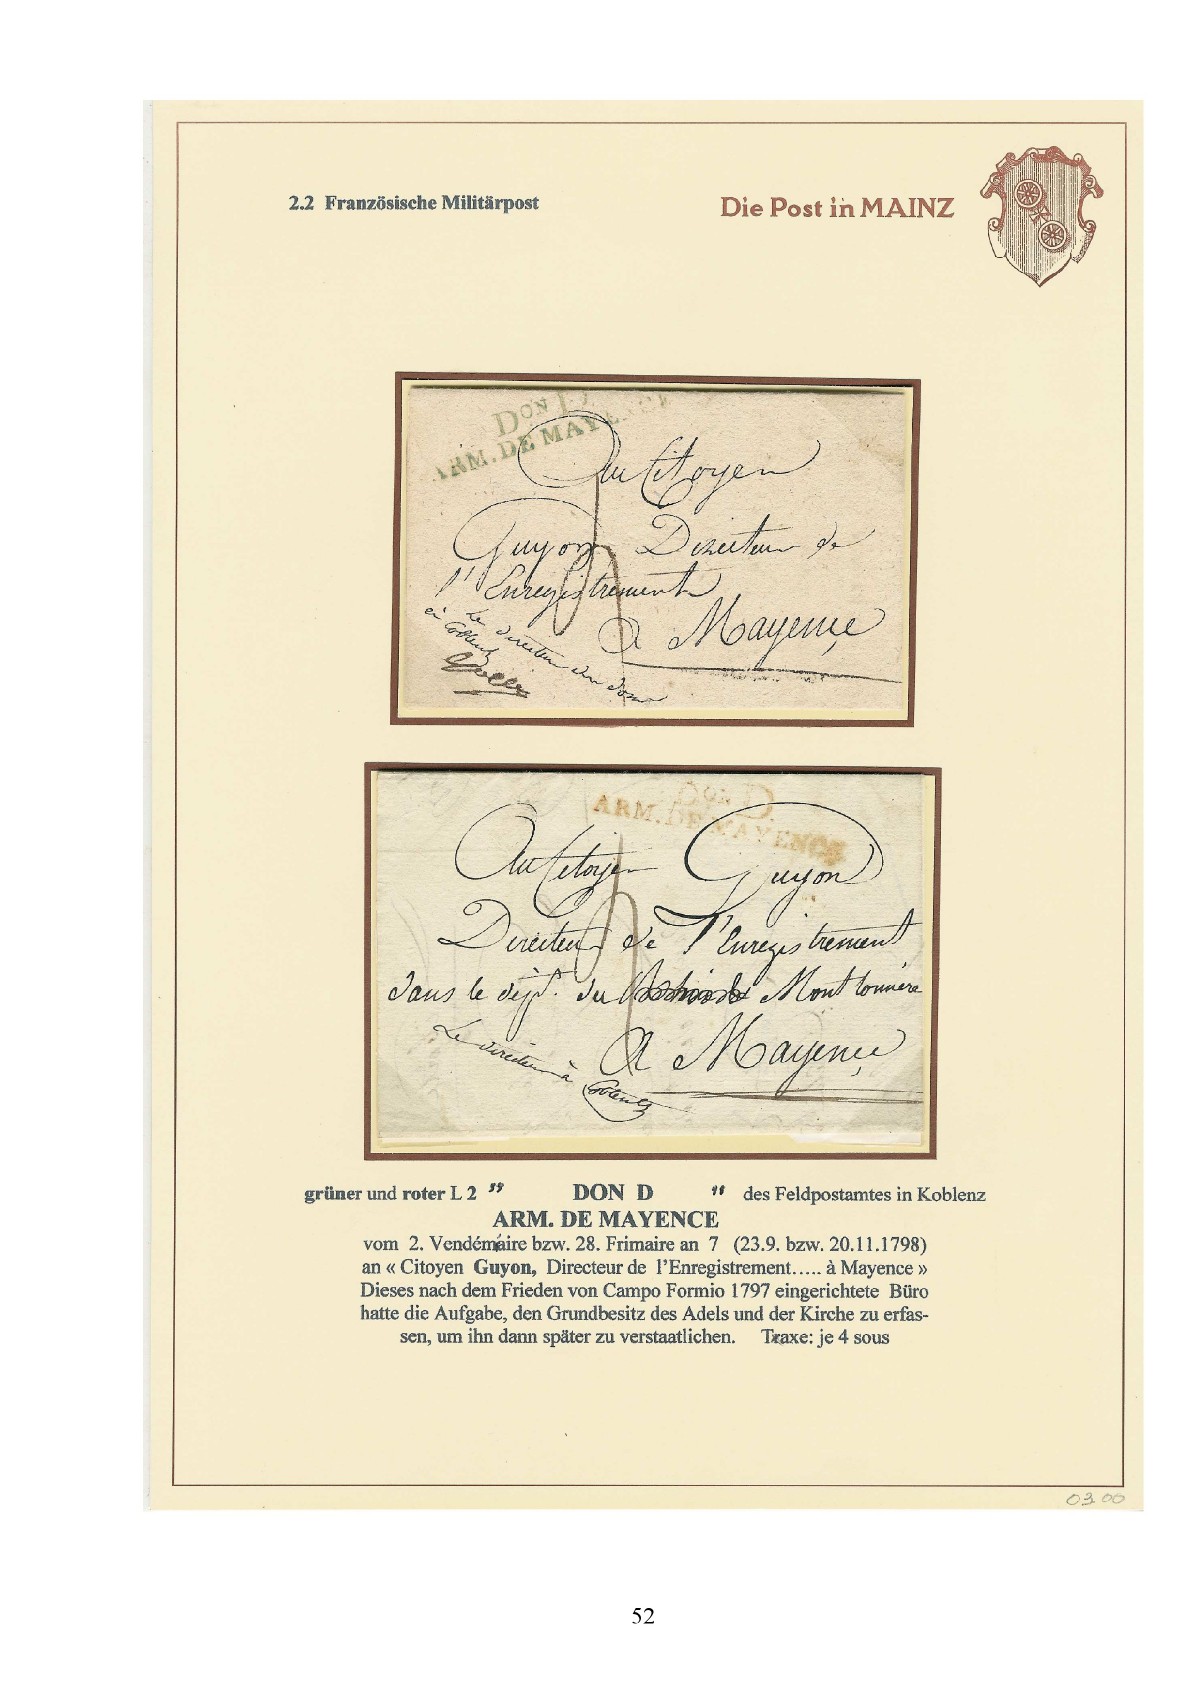 2.2 Französische Militärpost
Die Post in MAINZ
DON D.
ARM. DE MAYENCE
Au Citoyen
Guyon Directeur de
l'Enregistrement
à Mayence
Le directeur du
à Coblentz
DON D.
ARM. DE MAYENCE
Au Citoyen Guyon
Directeur de l'Enregistrement
dans le dépt. du Mont tonnére
A Mayence
Le directeur à Coblentz
grüner und roter L 2 " DON D " des Feldpostamtes in Koblenz
ARM. DE MAYENCE
vom 2. Vendémiaire bzw. 28. Frimaire an 7 (23.9. bzw. 20.11.1798)
an « Citoyen Guyon, Directeur de l'Enregistrement..... à Mayence »
Dieses nach dem Frieden von Campo Formio 1797 eingerichtete Büro
hatte die Aufgabe, den Grundbesitz des Adels und der Kirche zu erfas-
sen, um ihn dann später zu verstaatlichen. Traxe: je 4 sous
03 00
52